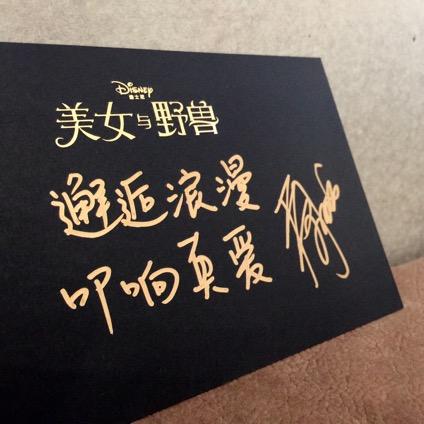 Disney
迪士尼
美女与野兽
邂逅浪漫
叩响真爱